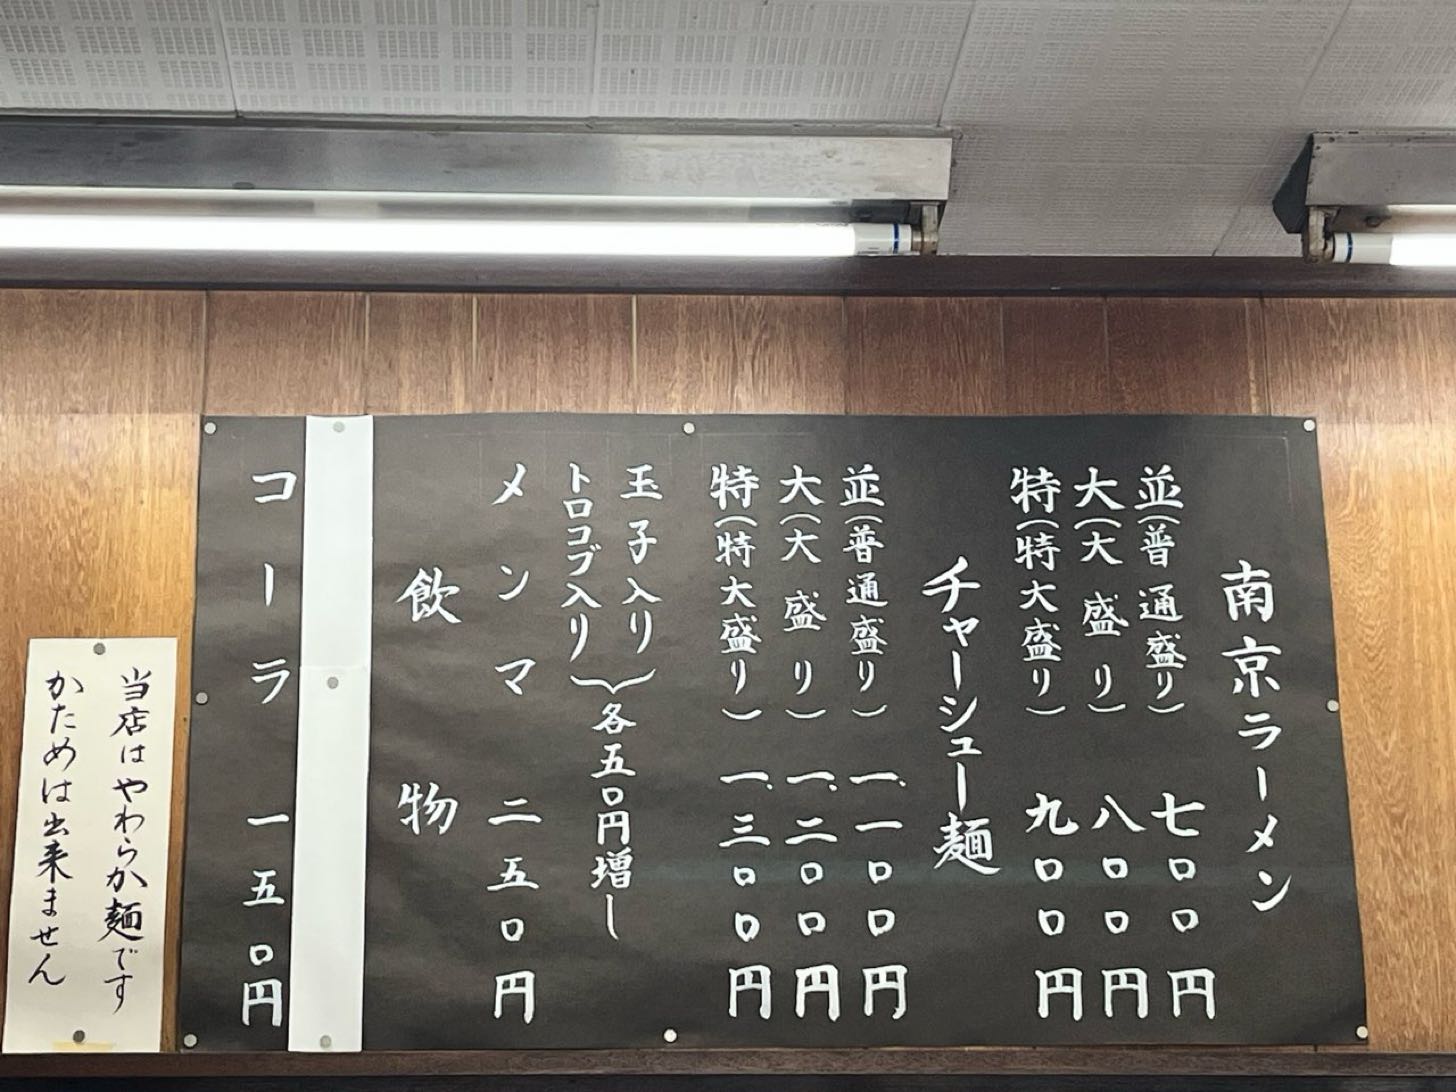 南京ラーメン
並(普通盛り) 七〇〇円
大(大盛り) 八〇〇円
特(特大盛り) 九〇〇円
チャーシュー麺
並(普通盛り) 一、一〇〇円
大(大盛り) 一、二〇〇円
特(特大盛り) 一、三〇〇円
玉子入り
トロコブ入り
各五〇円増し
メンマ 二五〇円
飲物
コーラ 一五〇円
当店はやわらか麺です
かためは出来ません